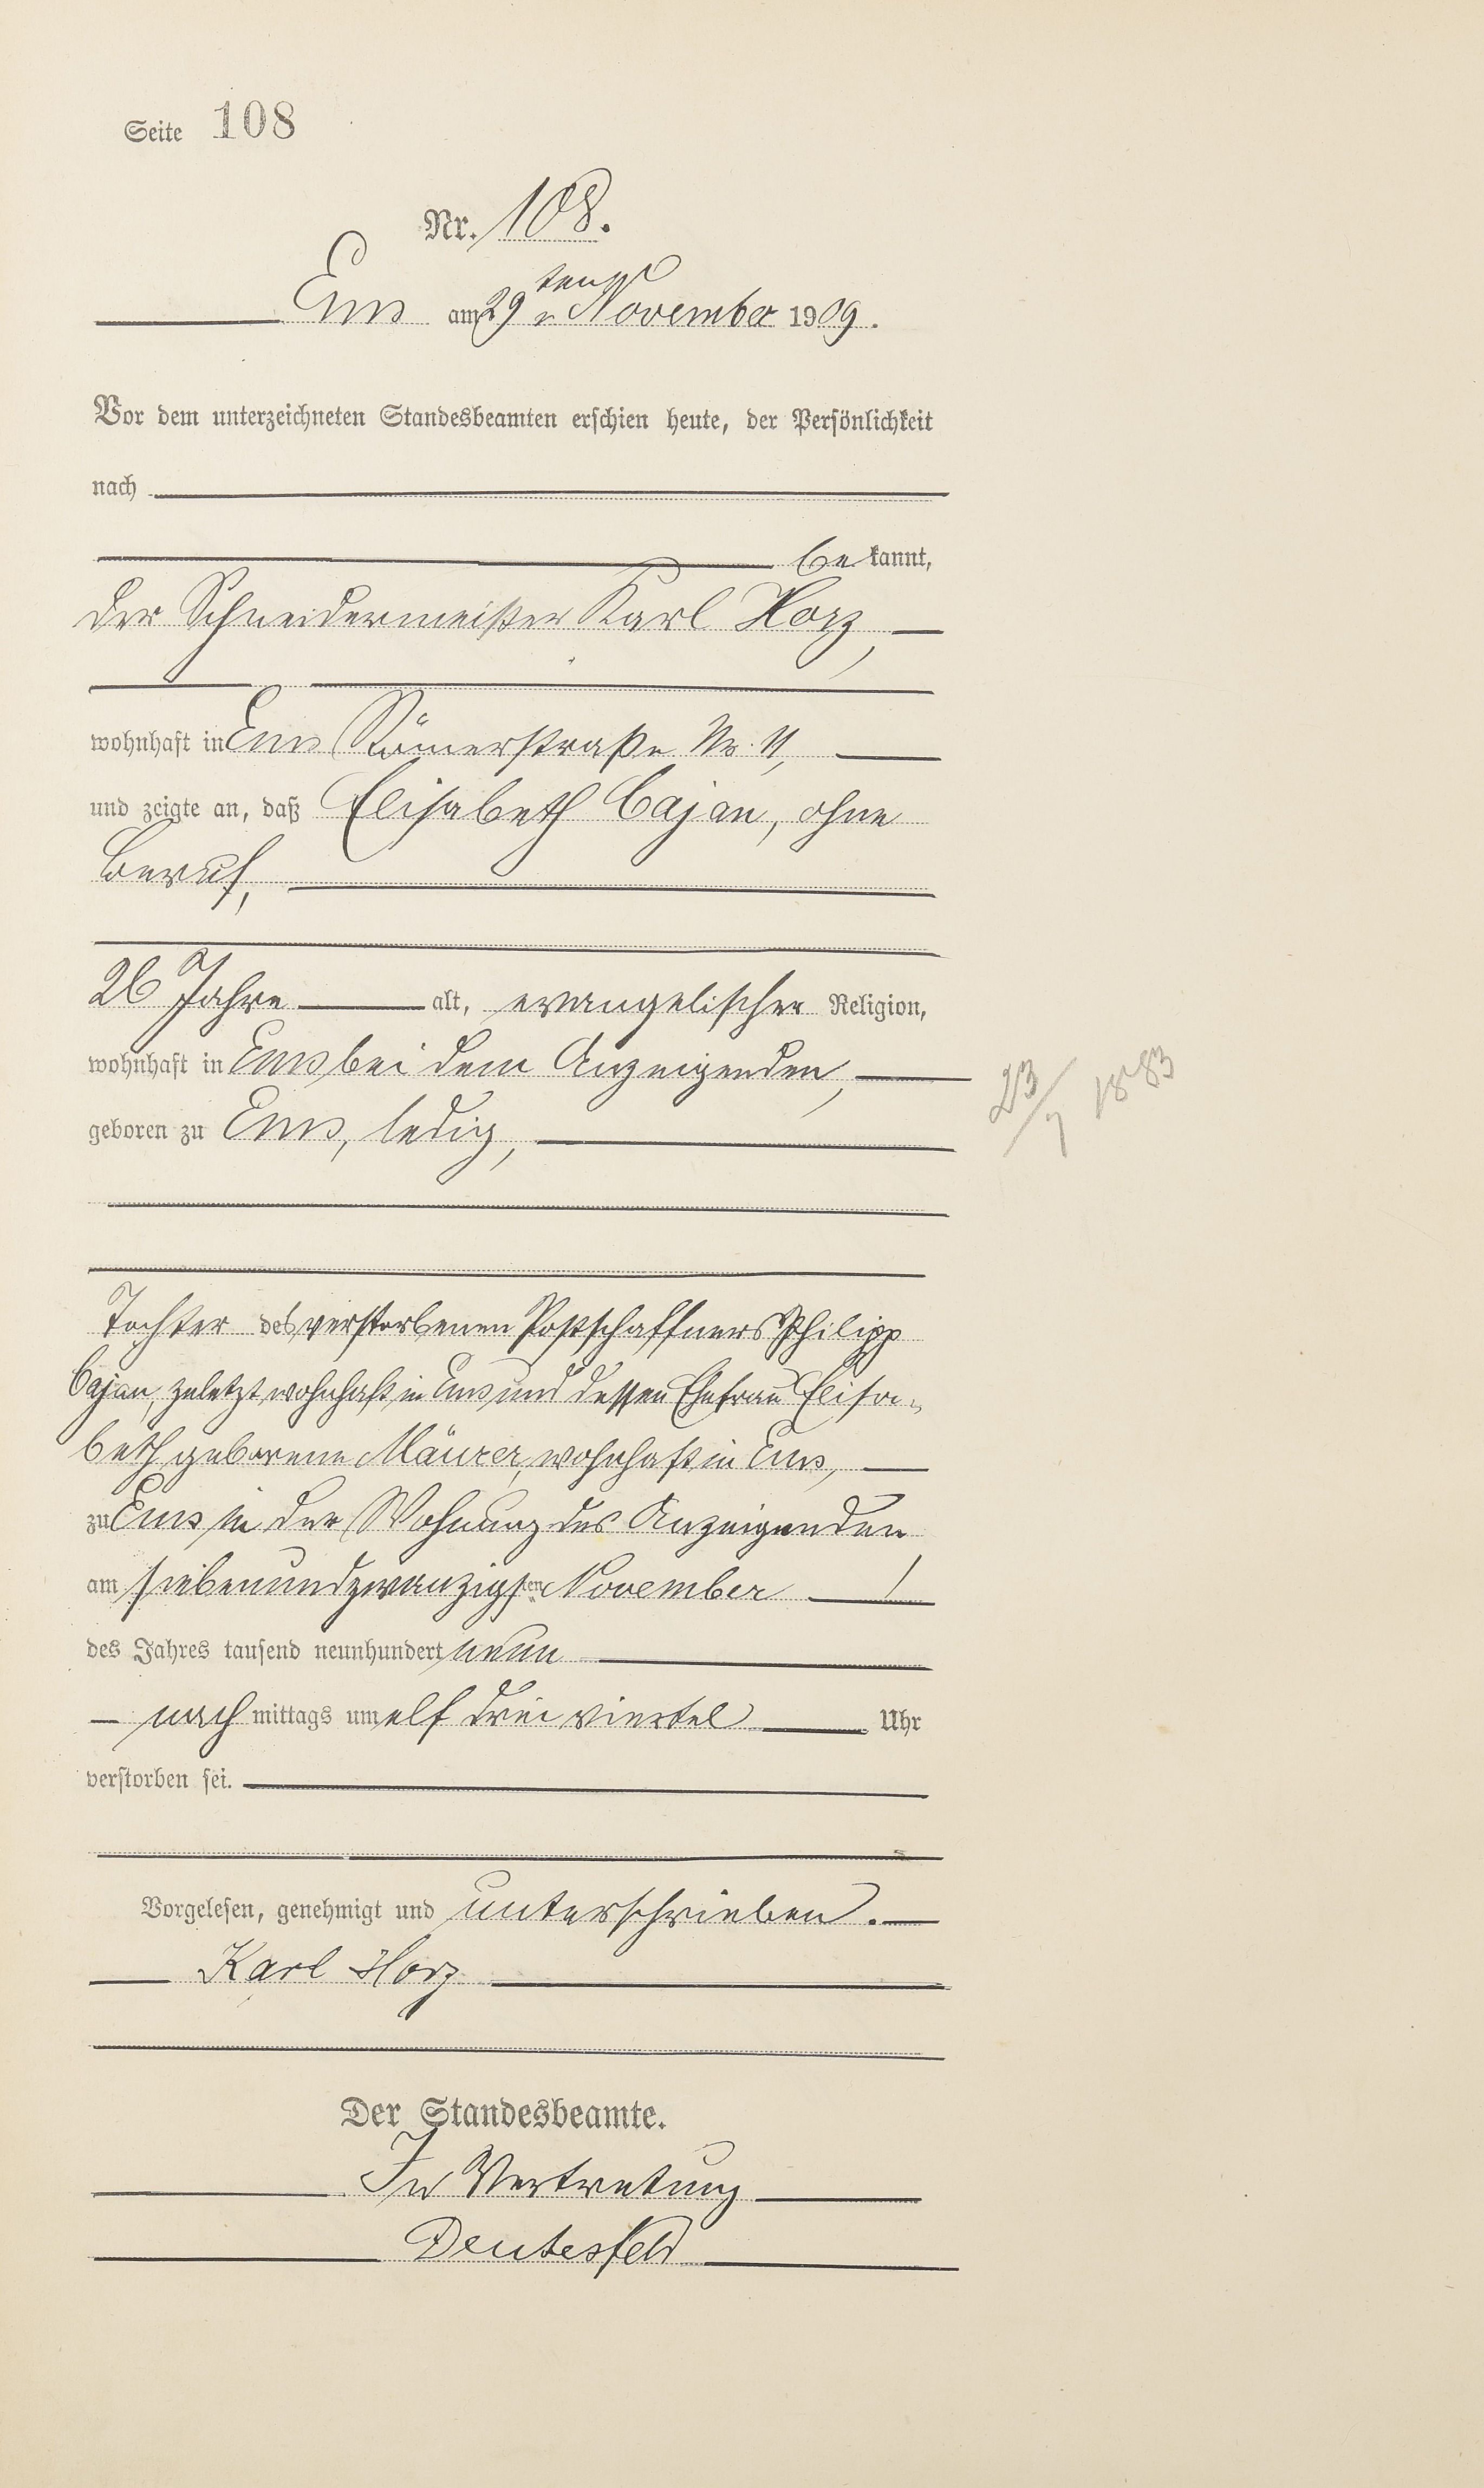 Seite 108
Nr. 108.
Ems am 29 ten November 1909.
Vor dem unterzeichneten Standesbeamten erschien heute, der Persönlichkeit
nach
be kannt,
der Schneidermeister Karl Horz,
wohnhaft in Ems Römerstraße Nr. 11,
und zeigte an, daß Elisabeth Cajan, ohne
Beruf,
26 Jahre alt, evangelischer Religion,
wohnhaft in Ems bei dem Anzeigenden,
23/7 1883
geboren zu Ems, ledig,
Tochter des verstorbenen Postschaffners Philipp
Cajan, zuletzt wohnhaft in Ems und dessen Ehefrau Elisa-
beth geborene Mäurer, wohnhaft in Ems,
zu Ems in der Wohnung des Anzeigenden
am siebenundzwanzigsten November
des Jahres tausend neunhundert neun
nach mittags um elf drei viertel Uhr
verstorben sei.
Vorgelesen, genehmigt und unterschrieben.
Karl Horz
Der Standesbeamte.
In Vertretung
Deutesfeld